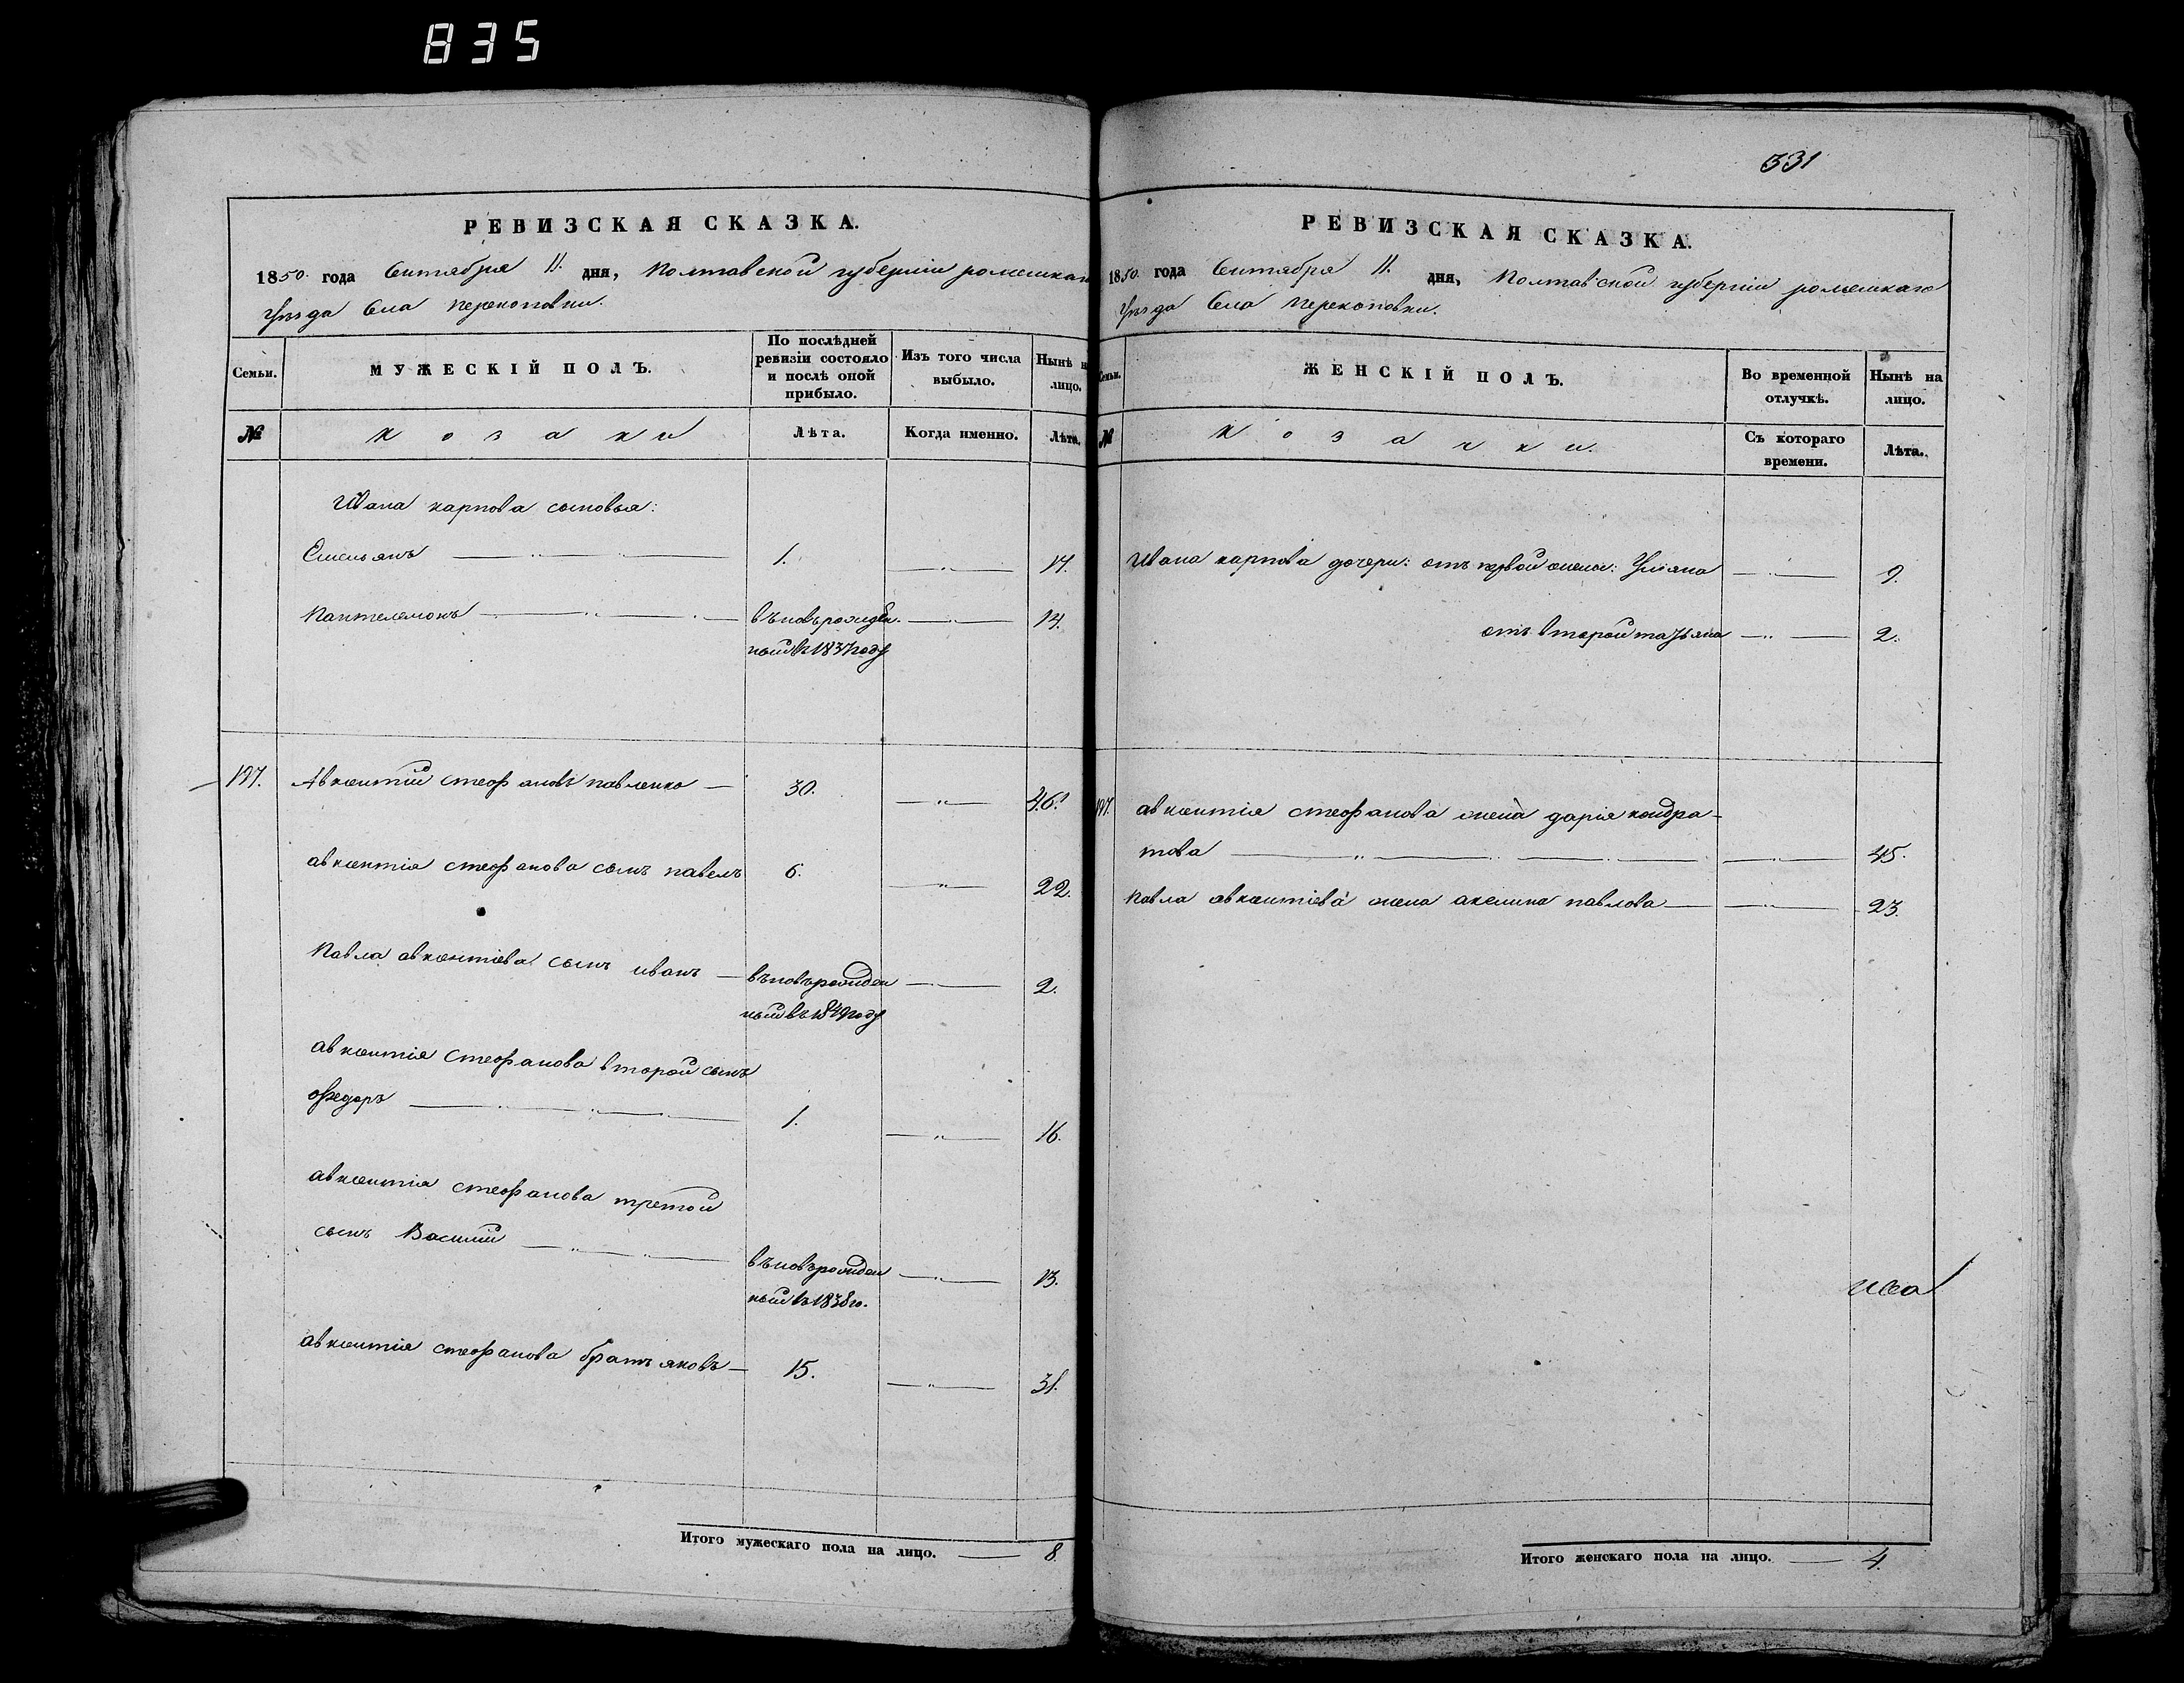 835
РЕВИЗСКАЯ СКАЗКА.
1850 года Сентября 11. дня, Полтавской губерніи роменскаго
уезда Села перекоповки.
Семьи. МУЖЕСКІЙ ПОЛЪ. По послѣдней ревизіи состояло и послѣ оной прибыло. Изъ того числа выбыло. Нынѣ на лицо.
№ козаки Лѣта. Когда именно. Лѣта.
Ивана карпова сыновья:
Емельянъ 1. 17.
Пантелемонъ въновьрожден. 14.
ныйвъ1837году
197. Авкентій стефановъ павленко 30. 46.
авкентія стефанова сынъ павелъ 6. 22.
Павла авкентіева сынъ иванъ въновьрожден 2.
ныйвъ1849году
авкентія Стефанова второй сынъ
федоръ 1. 16.
авкентія стефанова третой
сынъ Василій въновьрожден 13.
ныйвъ1838го.
авкентія стефанова братъ яковъ 15. 31.
Итого мужескаго пола на лицо. 8.
331
РЕВИЗСКАЯ СКАЗКА.
1850. года Сентября 11. дня, Полтавской губерніи роменскаго
уезда Села перекоповки.
Семьи. ЖЕНСКІЙ ПОЛЪ. Во временной отлучкѣ. Нынѣ на лицо.
№ козачки. Съ котораго времени. Лѣта.
Ивана карпова дочери: отъ первой жены: Уліяна 9.
отъ второй татьяна 2.
197. авкентія стефанова жена дарія кондра-
това 45.
Павла авкентіева жена акелина павлова 23.
Итого женскаго пола на лицо. 4.